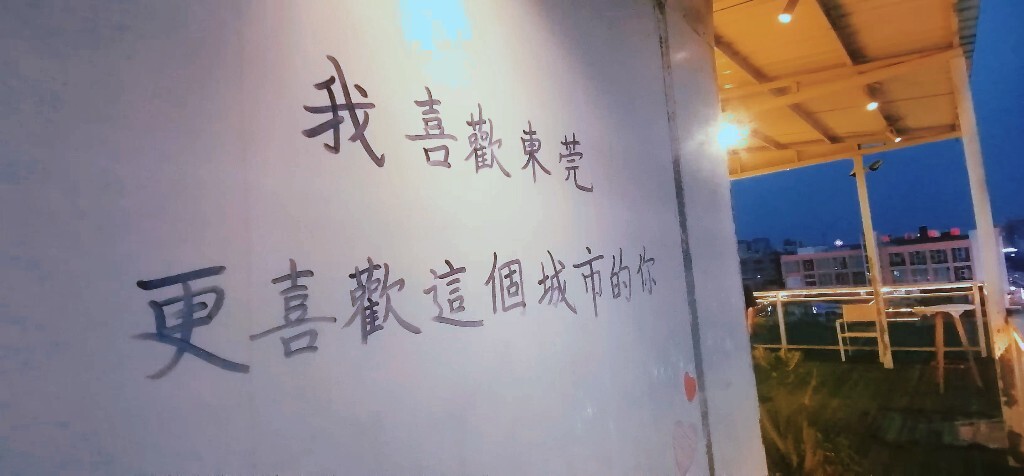 我喜歡東莞
更喜歡這個城市的你